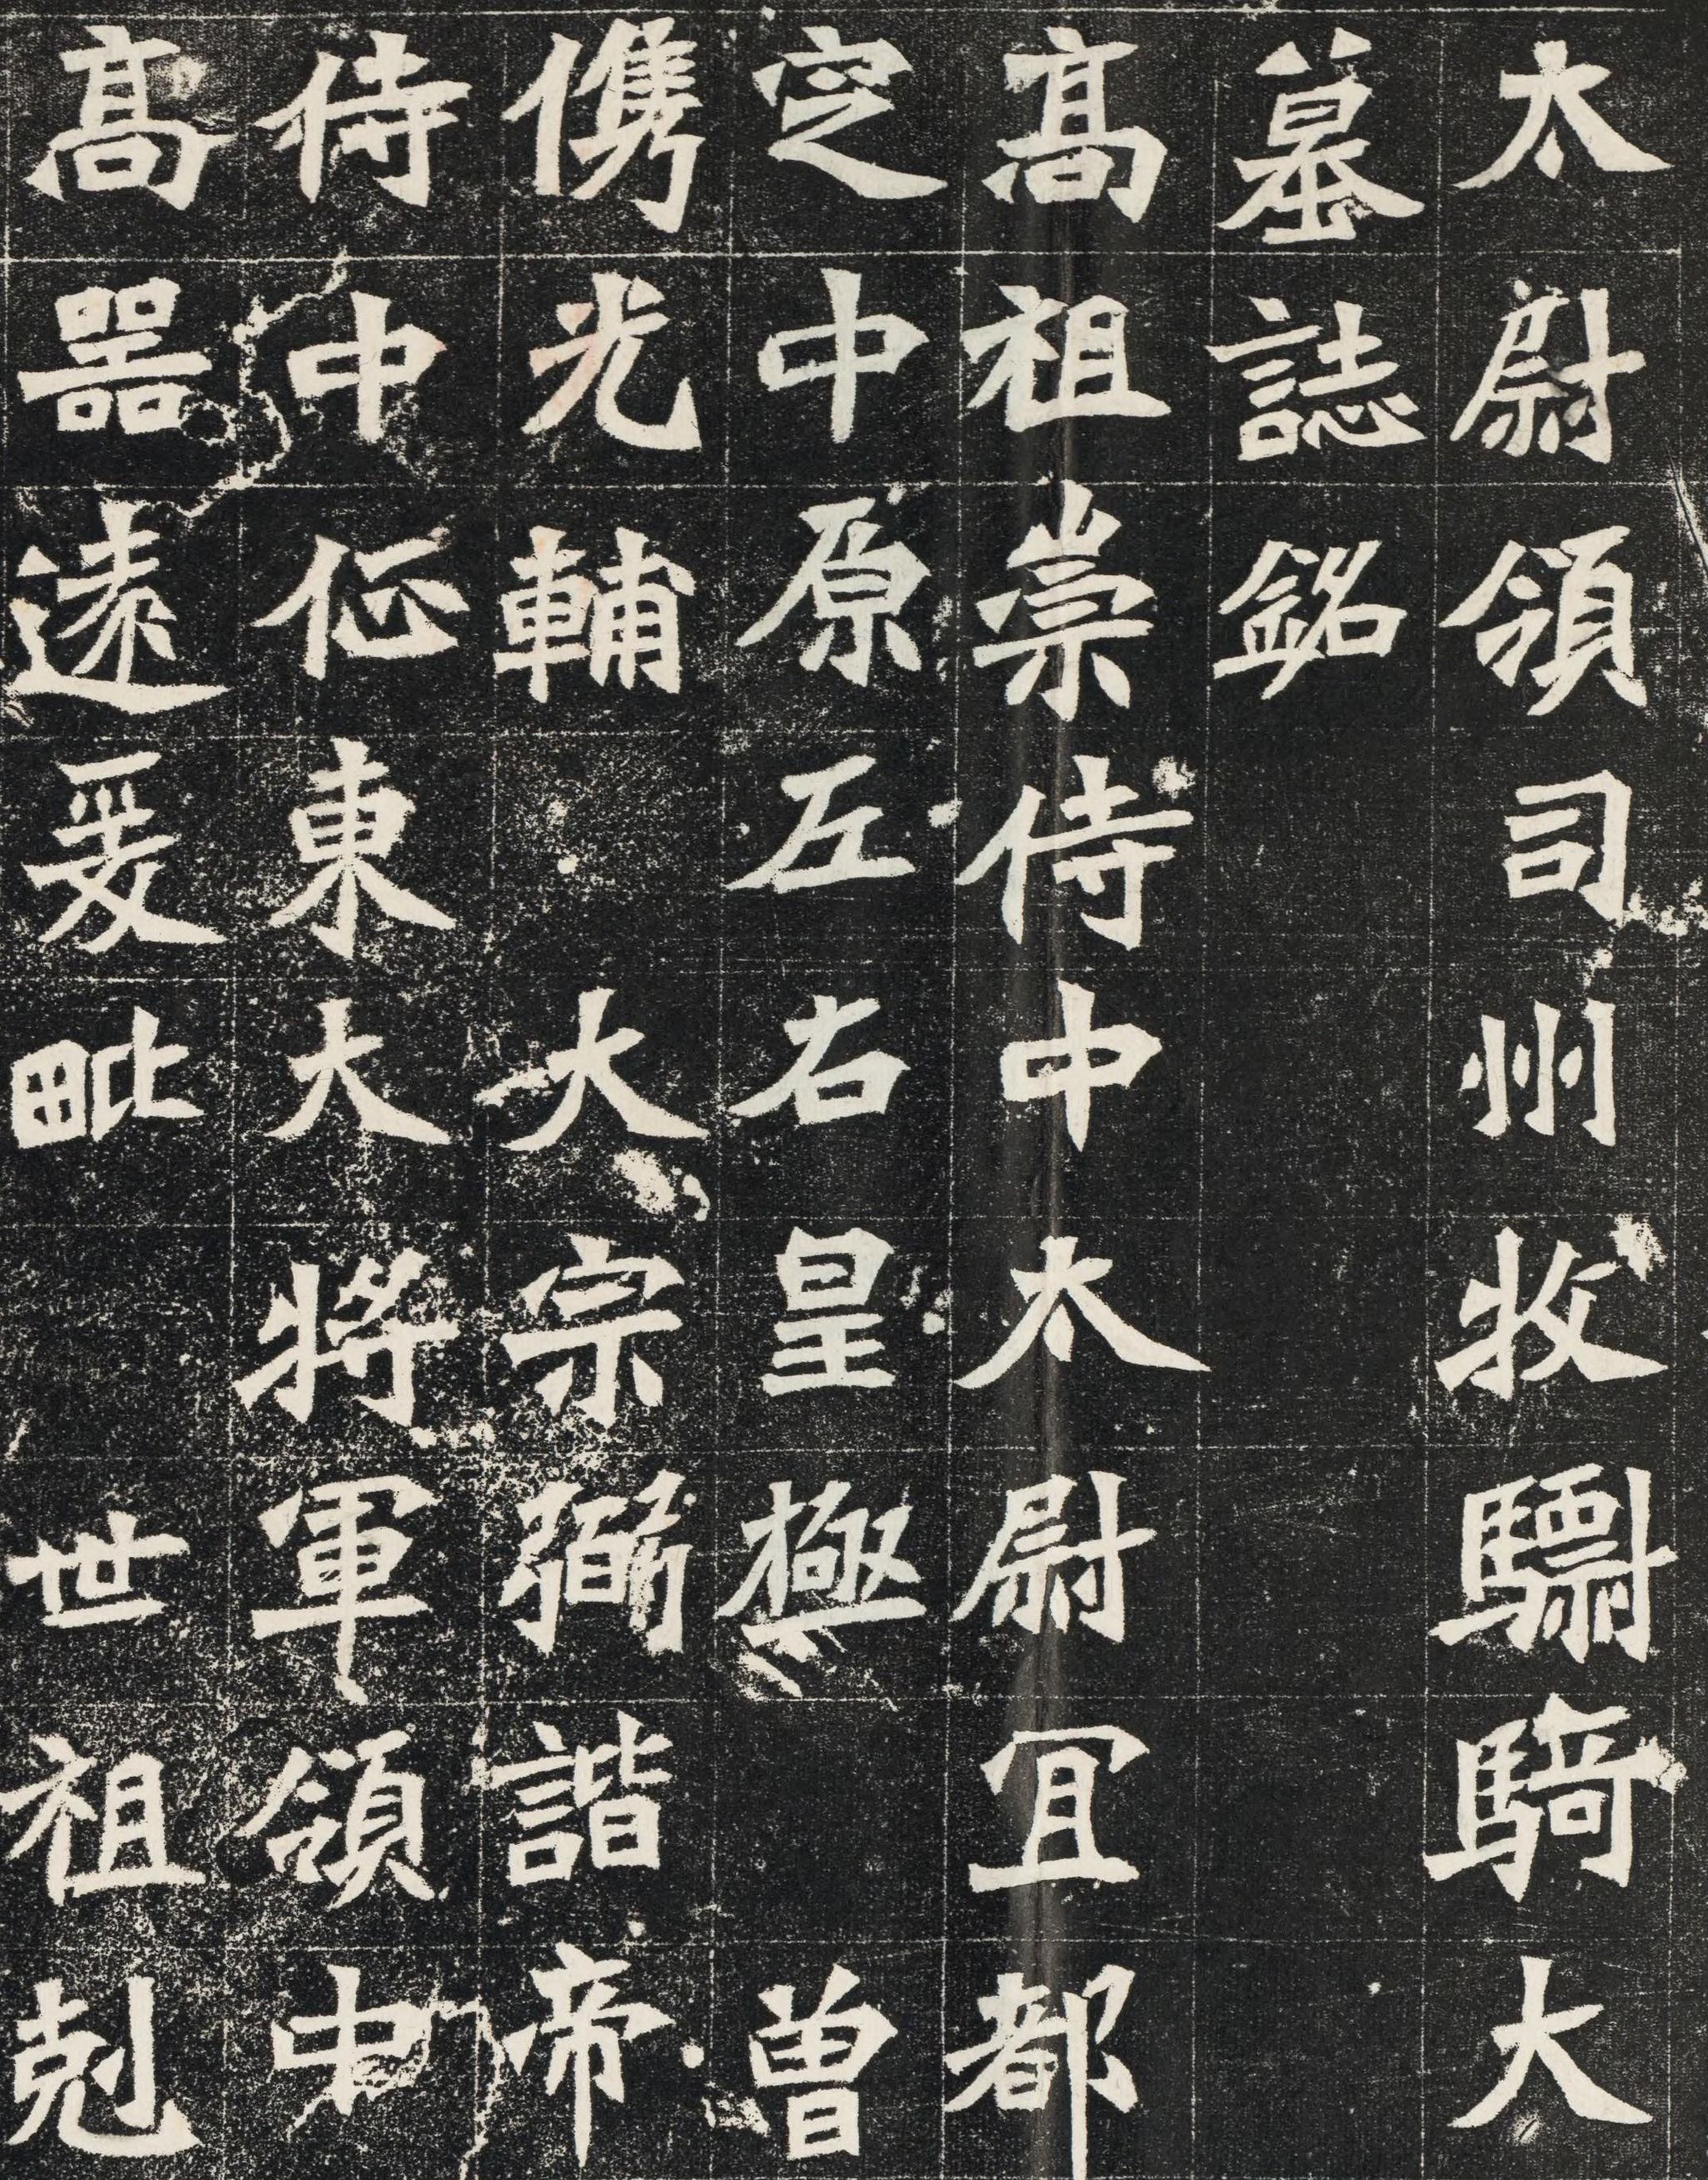 太尉領司州牧驃騎大
墓誌銘
高祖崇侍中太尉冝都
定中原左右皇極 曽
儁光輔 大宗弼諧帝
侍中征東大將軍領中
髙器遠爰毗 世祖剋